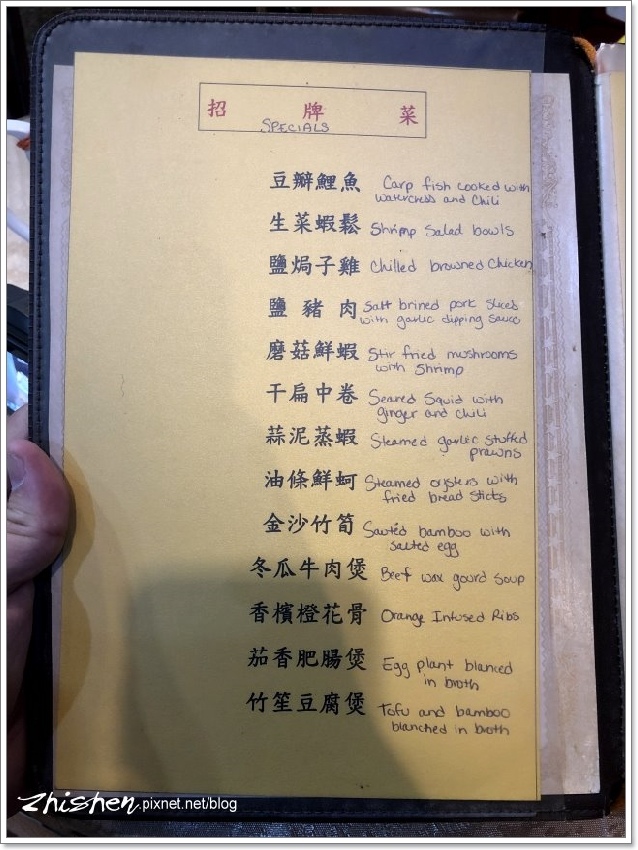 招 牌 菜
SPECIALS
豆瓣鯉魚 Carp fish cooked with
watercress and Chili
生菜蝦鬆 Shrimp Salad bowls
鹽焗子雞 Chilled browned Chicken
鹽 豬 肉 Salt brined pork sliced
with garlic dipping sauce
磨菇鮮蝦 Stir fried mushrooms
with Shrimp
干扁中卷 Seared Squid with
ginger and chili
蒜泥蒸蝦 Steamed garlic stuffed
prawns
油條鮮蚵 Steamed oysters with
fried bread sticks
金沙竹筍 Sautéd bamboo with
salted egg
冬瓜牛肉煲 Beef wax gourd soup
香檳橙花骨 Orange Infused Ribs
茄香肥腸煲 Egg plant blanced
in broth
竹笙豆腐煲 Tofu and bamboo
blanched in broth
zhishen.pixnet.net/blog